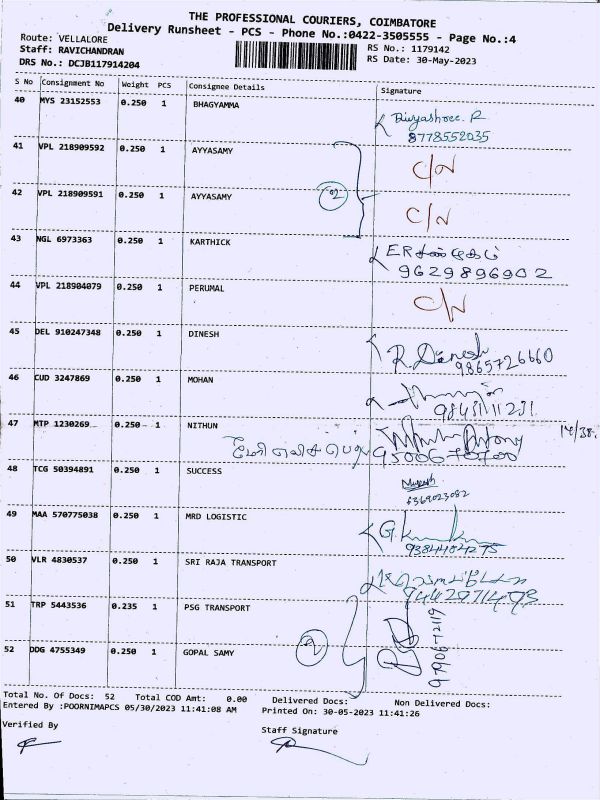 THE PROFESSIONAL COURIERS, COIMBATORE
Delivery Runsheet - PCS - Phone No.:0422-3505555 - Page No.:4
Route: VELLALORE
Staff: RAVICHANDRAN
DRS No.: DCJB117914204
RS No.: 1179142
RS Date: 30-May-2023
S No Consignment No Weight PCS Consignee Details Signature
40 MYS 23152553 0.250 1 BHAGYAMMA Divyashree. R
8778552035
41 VPL 218909592 0.250 1 AYYASAMY C/N
42 VPL 218909591 0.250 1 AYYASAMY 2 C/N
43 NGL 6973363 0.250 1 KARTHICK
9629896902
44 VPL 218904079 0.250 1 PERUMAL C/N
45 DEL 910247348 0.250 1 DINESH R. Dinesh
9865726660
46 CUD 3247869 0.250 1 MOHAN
47 MTP 1230269 0.250 1 NITHUN
9500670700
48 TCG 50394891 0.250 1 SUCCESS
6369023082
49 MAA 570775038 0.250 1 MRD LOGISTIC
9384404275
50 VLR 4830537 0.250 1 SRI RAJA TRANSPORT
51 TRP 5443536 0.235 1 PSG TRANSPORT
9790672119
52 DDG 4755349 0.250 1 GOPAL SAMY 2
Total No. Of Docs: 52 Total COD Amt: 0.00 Delivered Docs: Non Delivered Docs:
Entered By :POORNIMAPCS 05/30/2023 11:41:08 AM Printed On: 30-05-2023 11:41:26
Verified By
Staff Signature